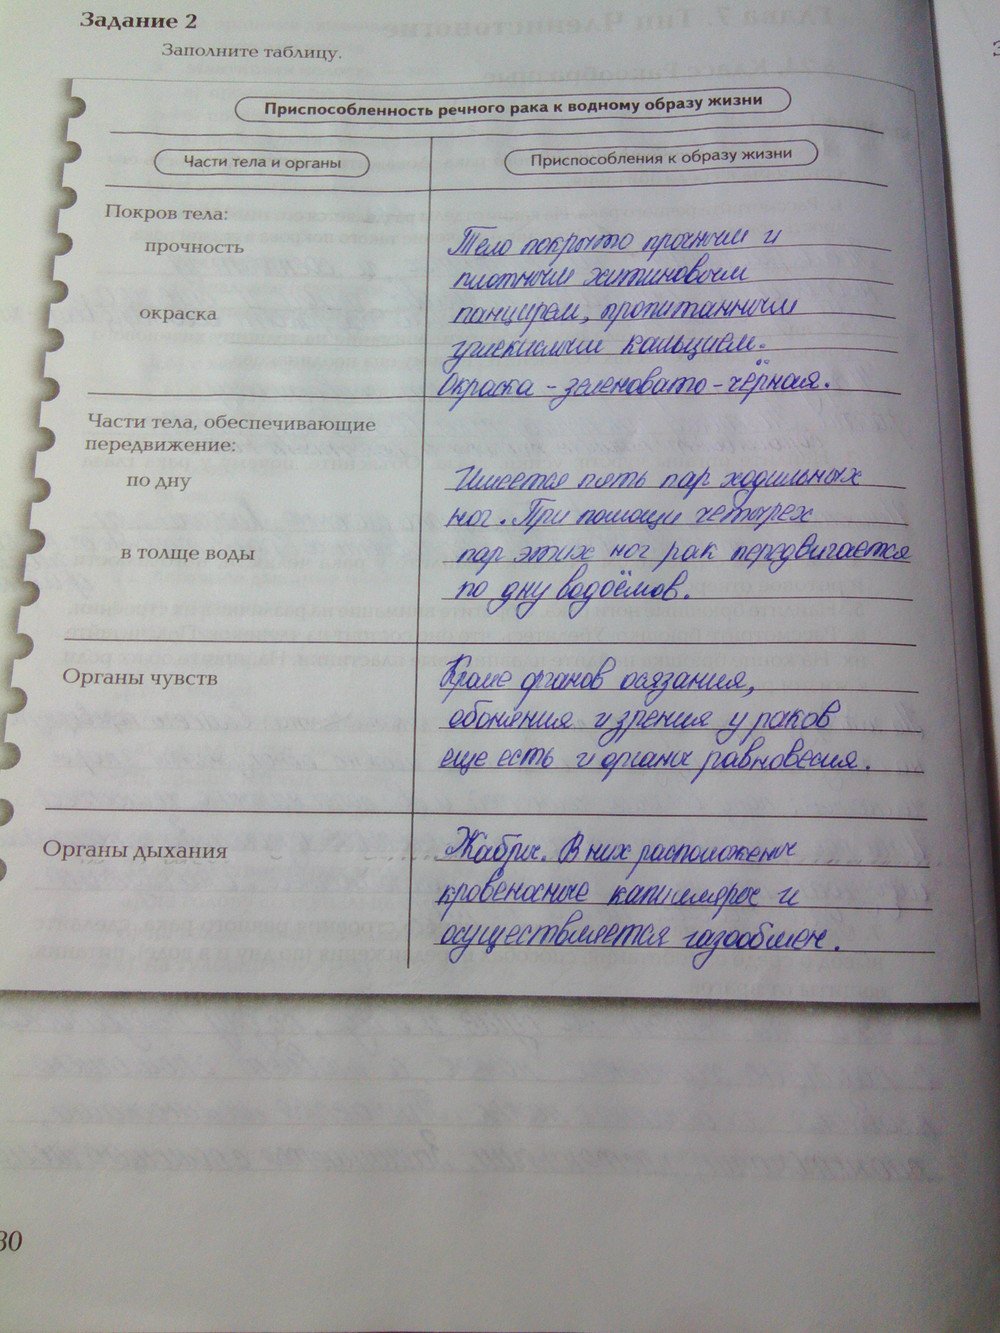 Задание 2
Заполните таблицу.
Приспособленность речного рака к водному образу жизни
Части тела и органы
Приспособления к образу жизни
Покров тела:
прочность
окраска
Тело покрыто прочным и
плотным хитиновым
панцирем, пропитанным
углекислым кальцием.
Окраска - зеленовато - чёрная.
Части тела, обеспечивающие
передвижение:
по дну
в толще воды
Имеется пять пар ходильных
ног. При помощи четырех
пар этих ног рак передвигается
по дну водоёмов.
Органы чувств
Кроме органов осязания,
обоняния и зрения у раков
еще есть и органы равновесия.
Органы дыхания
Жабры. В них расположены
кровеносные капилляры и
осуществляется газообмен.
80